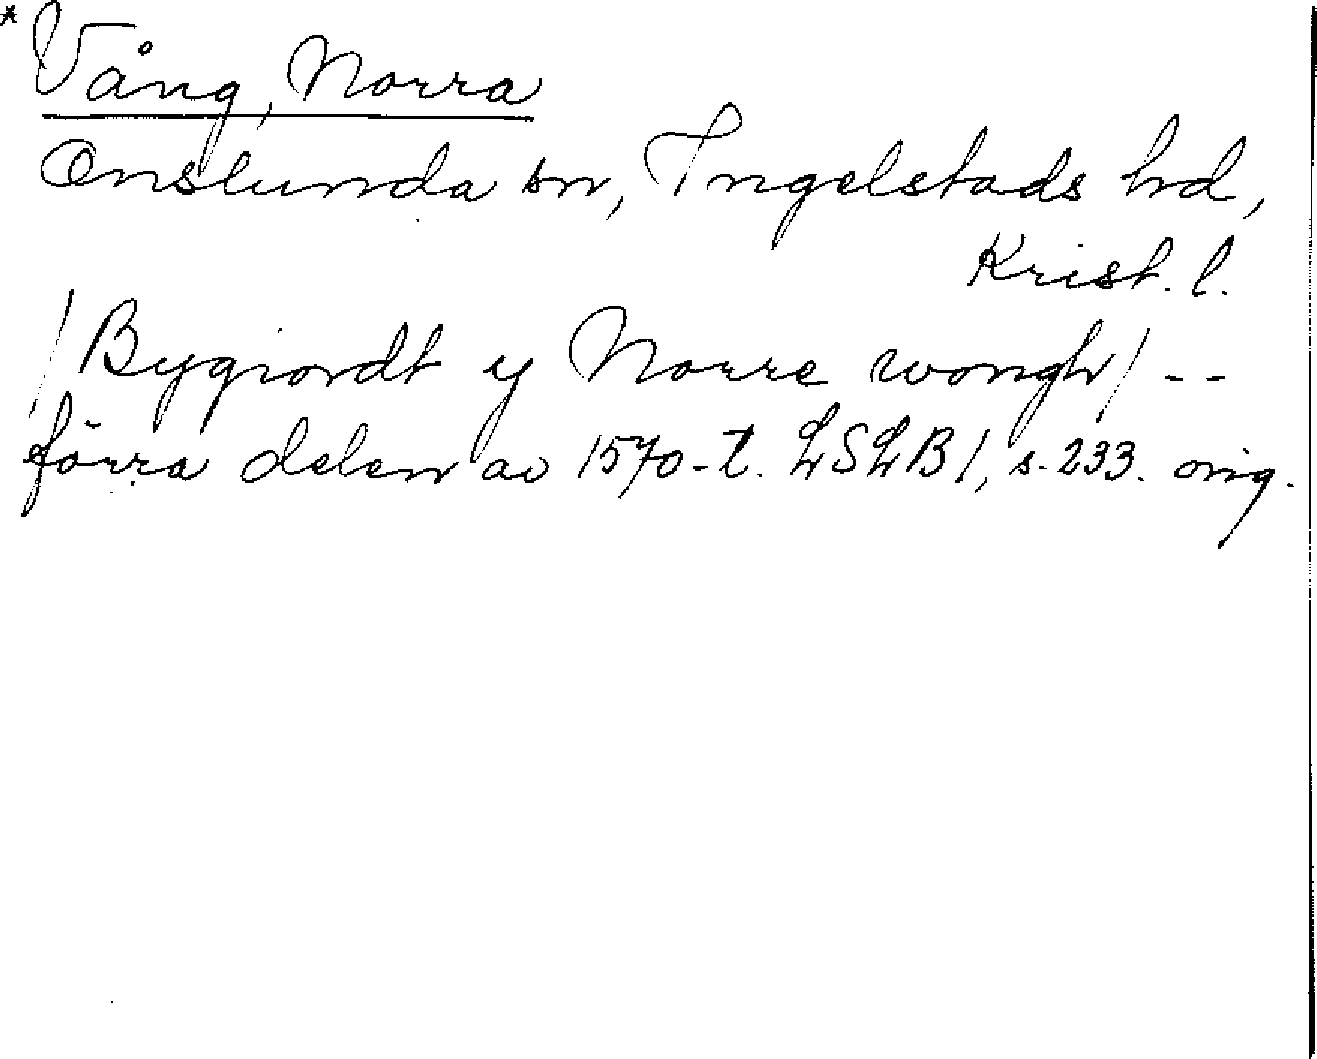 *Vång, Norra
Onslunda sn, Ingelstads hd,
Krist. l.
/Bygiordt y Norre wongh/ --
förra delen av 1570-t. LSLB 1, s. 233. orig.